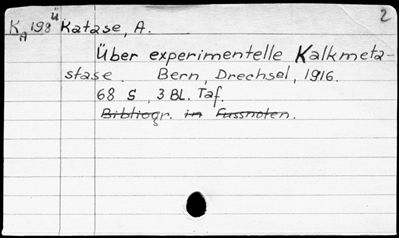 2
K_A 198 Ü Katase, A.
Über experimentelle Kalkmeta-
stase. Bern, Drechsel, 1916.
68 S, 3 Bl. Taf.
Bibliogr. in Fussnoten.